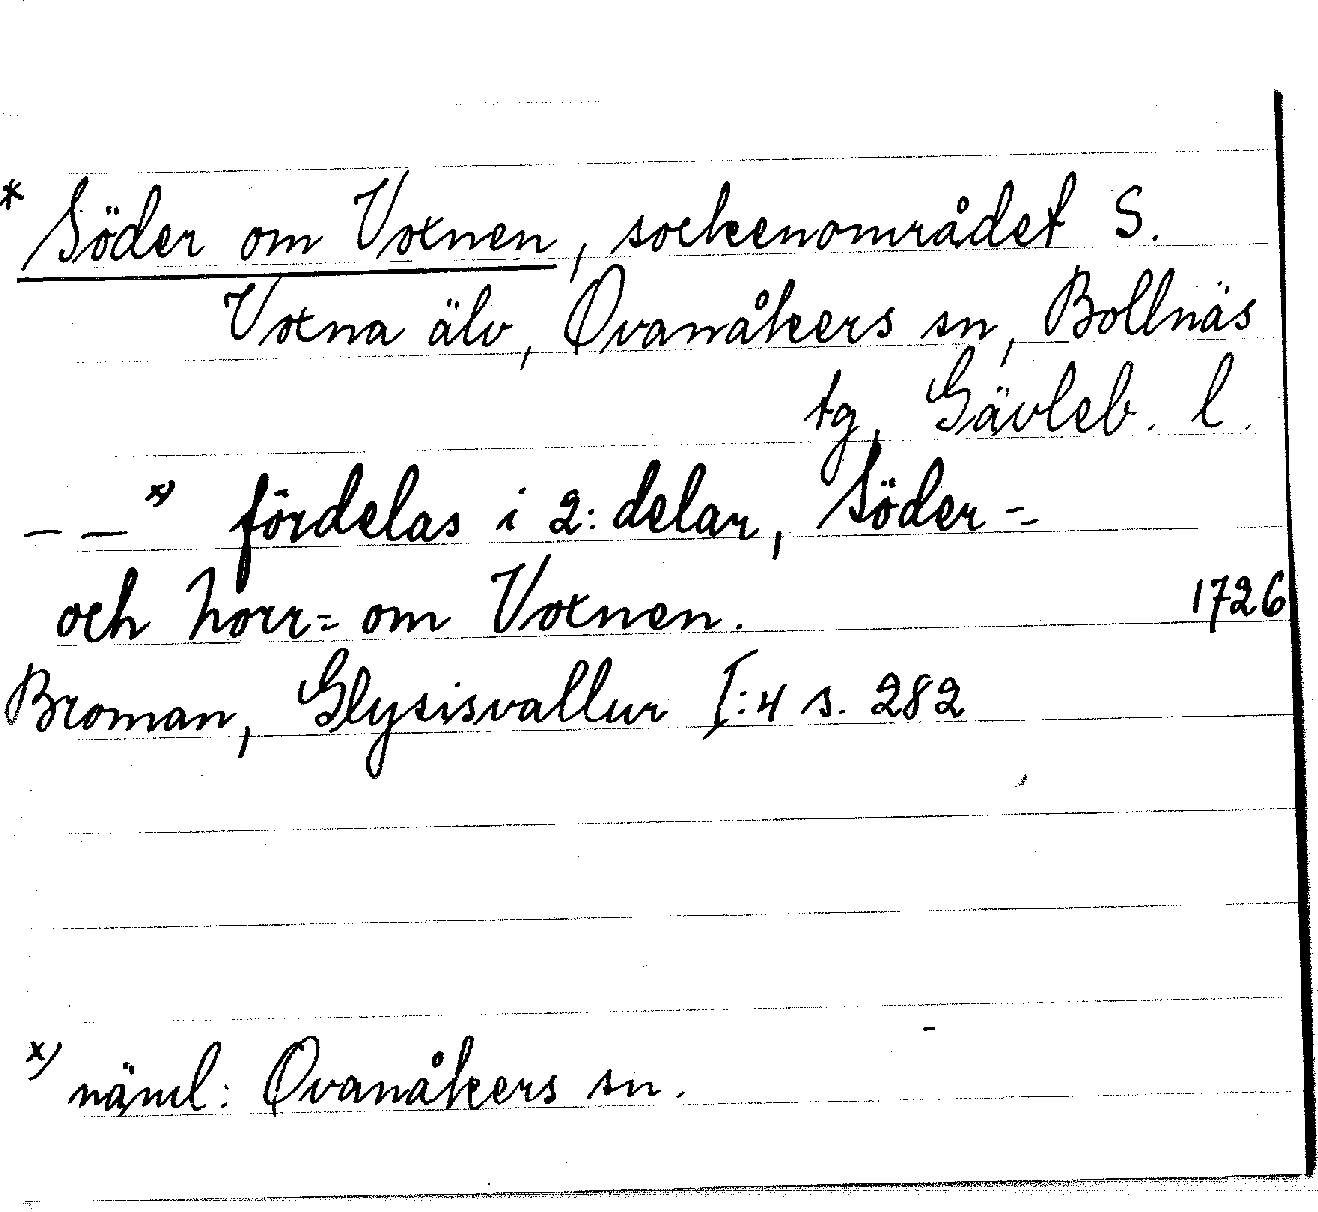 * Söder om Voxnen, sockenområdet S.
Voxna älv, Ovanåkers sn, Bollnäs
tg, Gävleb. l.
– – x) fördelas i 2: delar, Söder=
och Norr= om Voxnen. 1726
Broman, Glysisvallur I:4 s. 282
x) näml: Ovanåkers sn.